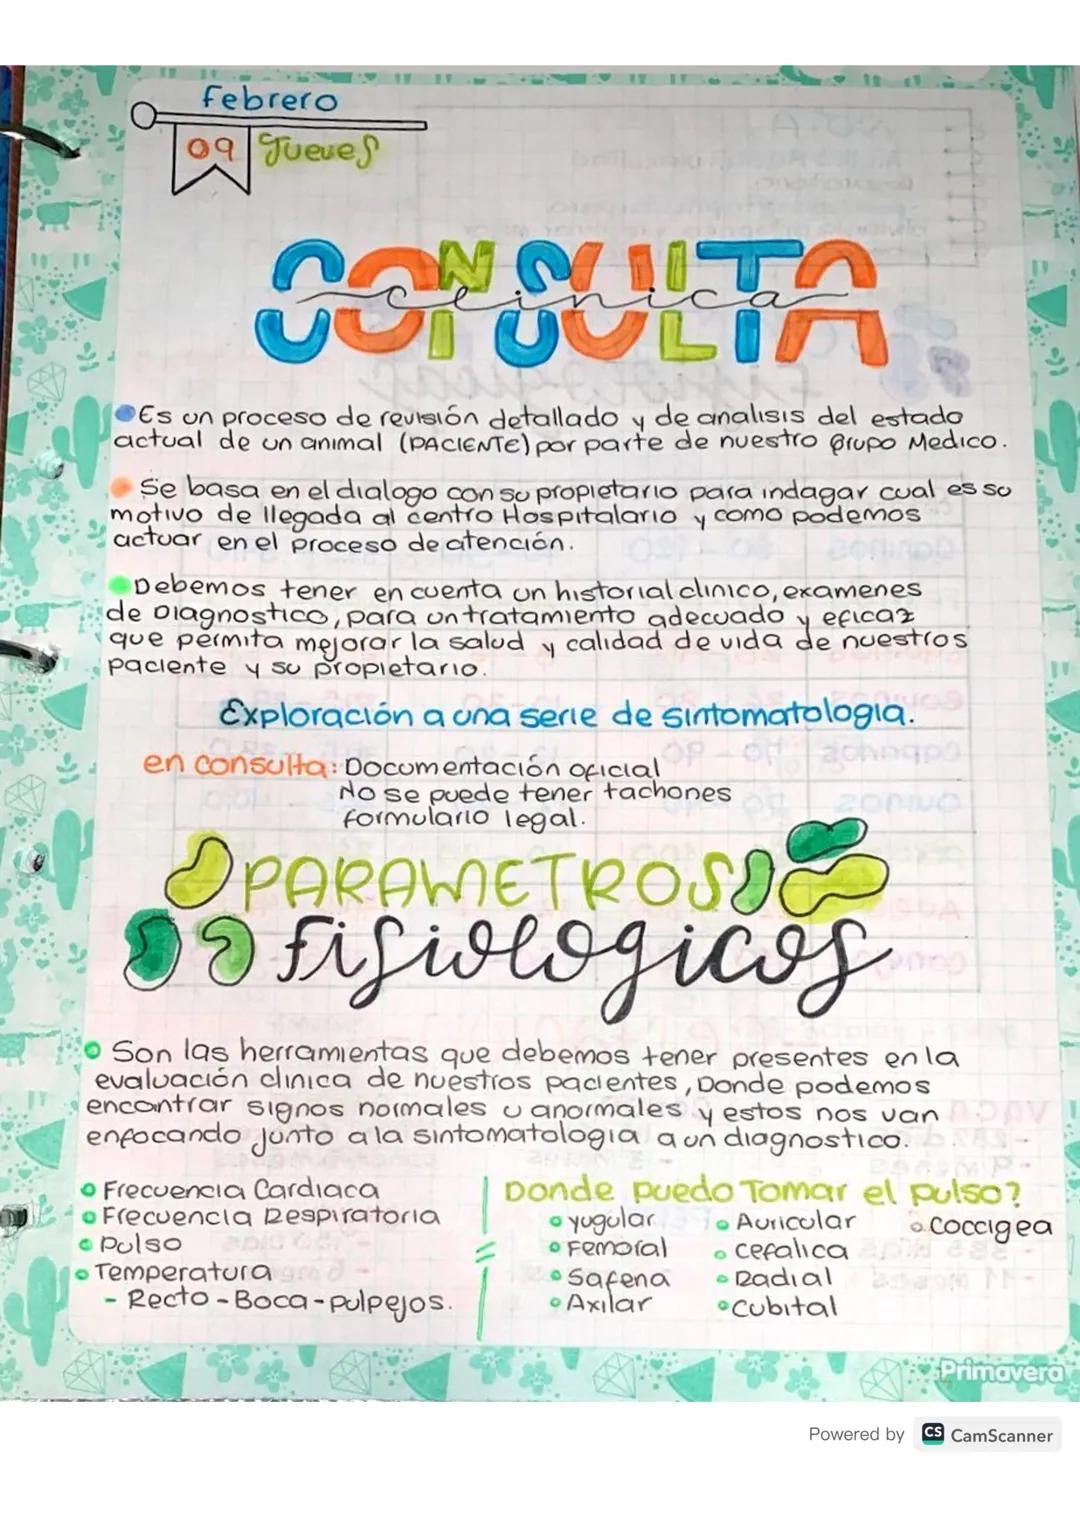 Febrero
09 Jueves
CONSULTA
clinica
Es un proceso de revisión detallado y de analisis del estado
actual de un animal (PACIENTE) por parte de nuestro Grupo Medico.
Se basa en el dialogo con su propietario para indagar cual es su
motivo de llegada al centro Hospitalario y como podemos
actuar en el proceso de atención.
Debemos tener en cuenta un historial clinico, examenes
de Diagnostico, para un tratamiento adecuado y eficaz
que permita mejorar la salud y calidad de vida de nuestros
paciente y su propietario.
Exploración a una serie de sintomatologia.
en consulta: Documentación oficial
No se puede tener tachones
formulario legal.
PARAMETROS
fisiologicos
Son las herramientas que debemos tener presentes en la
evaluación clinica de nuestros pacientes, Donde podemos
encontrar signos normales u anormales y estos nos van
enfocando junto a la sintomatologia a un diagnostico.
Frecuencia Cardiaca
Frecuencia Respiratoria
Pulso
Temperatura
- Recto - Boca - pulpejos.
Donde puedo Tomar el pulso?
yugular
Femoral
Safena
Axilar
Auricular
cefalica
Radial
Cubital
Coccigea
Primavera
Powered by CS CamScanner